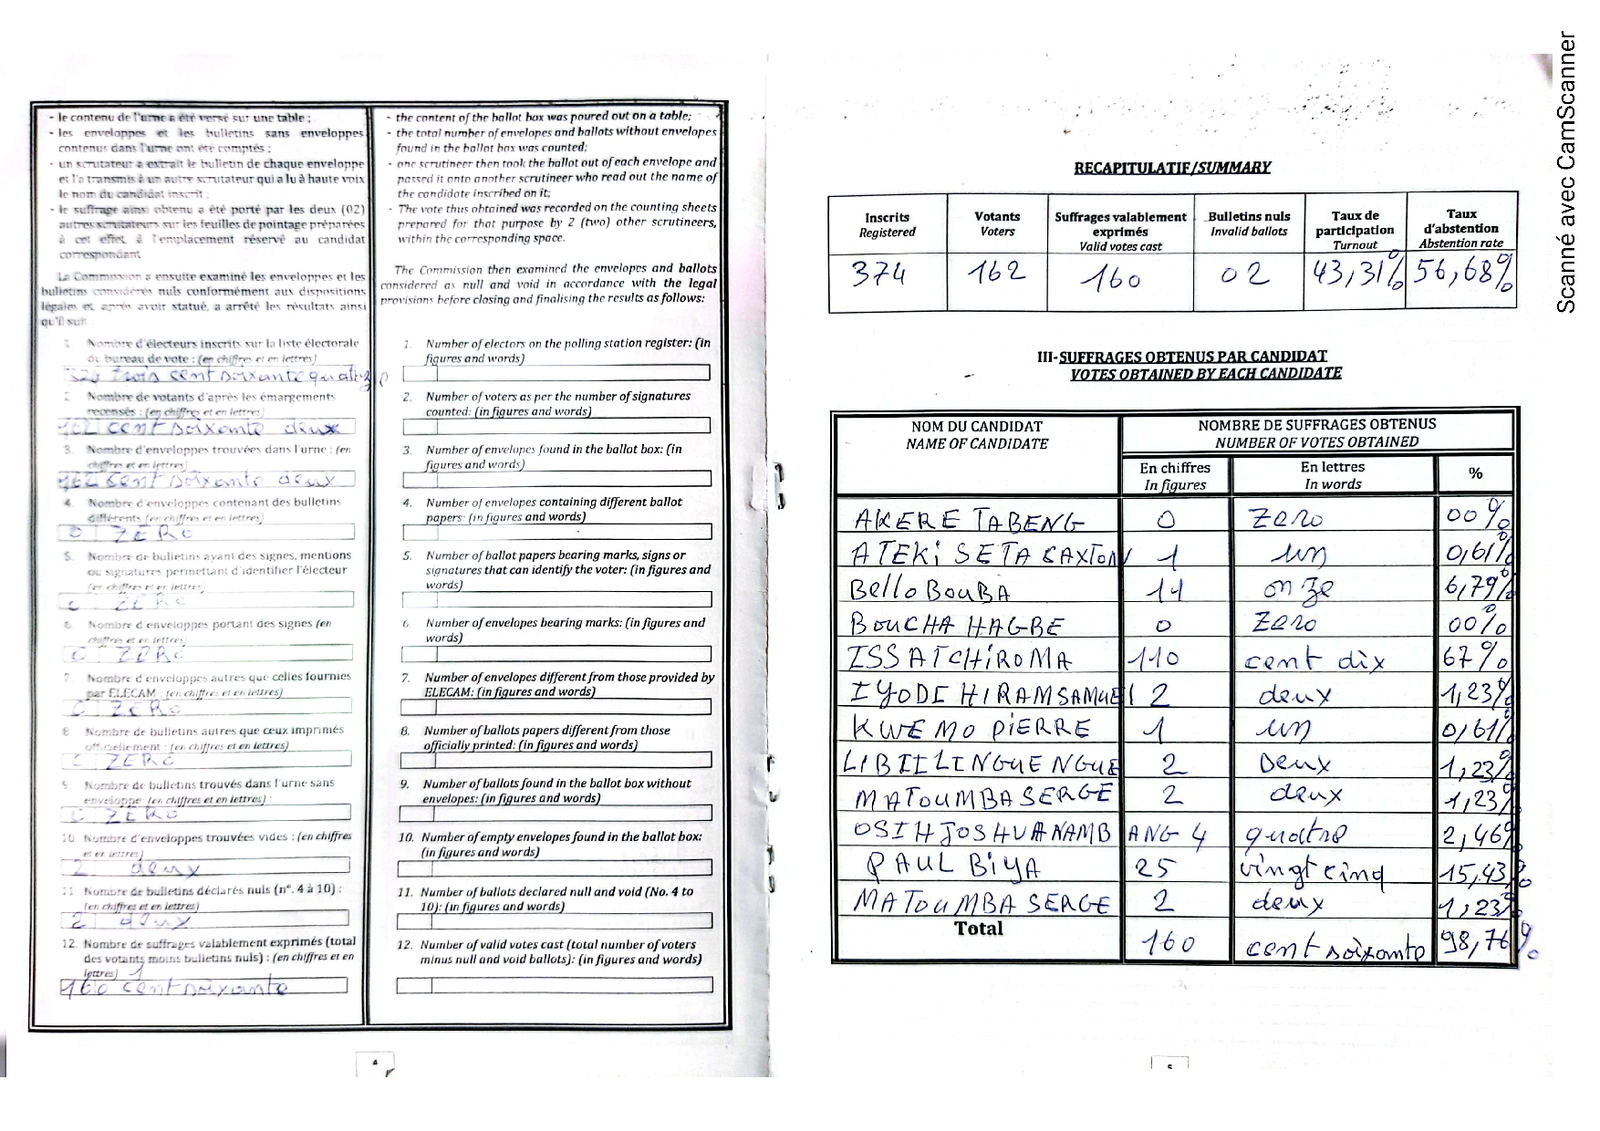 - le contenu de l'urne a été versé sur une table ;
- les enveloppes et les bulletins sans enveloppes
contenus dans l'urne ont été comptés ;
- un scrutateur a extrait le bulletin de chaque enveloppe
et l'a transmis à un autre scrutateur qui a lu à haute voix
le nom du candidat inscrit ;
- le suffrage ainsi obtenu a été porté par les deux (02)
autres scrutateurs sur les feuilles de pointage préparées
à cet effet à l'emplacement réservé au candidat
correspondant
La Commission a ensuite examiné les enveloppes et les
bulletins considérés nuls conformément aux dispositions
légales et après avoir statué, a arrêté les résultats ainsi
qu'il suit
1. Nombre d'électeurs inscrits sur la liste électorale
du bureau de vote : (en chiffres et en lettres)
374 trois cent soixante quatorze
2. Nombre de votants d'après les émargements
recensés : (en chiffres et en lettres)
162 cent soixante deux
3. Nombre d'enveloppes trouvées dans l'urne : (en
chiffres et en lettres)
162 cent soixante deux
4. Nombre d'enveloppes contenant des bulletins
différents (en chiffres et en lettres)
0 ZERO
5. Nombre de bulletins ayant des signes, mentions
ou signatures permettant d'identifier l'électeur
(en chiffres et en lettres)
0 ZERO
6. Nombre d'enveloppes portant des signes (en
chiffres et en lettres)
0 ZERO
7. Nombre d'enveloppes autres que celles fournies
par ELECAM : (en chiffres et en lettres)
0 ZERO
8. Nombre de bulletins autres que ceux imprimés
officiellement : (en chiffres et en lettres)
0 ZERO
9. Nombre de bulletins trouvés dans l'urne sans
enveloppe (en chiffres et en lettres) :
0 ZERO
10. Nombre d'enveloppes trouvées vides : (en chiffres
et en lettres)
2 deux
11. Nombre de bulletins déclarés nuls (n°. 4 à 10) :
(en chiffres et en lettres)
2 deux
12. Nombre de suffrages valablement exprimés (total
des votants moins bulletins nuls) : (en chiffres et en
lettres) 1
160 cent soixante
4
- the content of the ballot box was poured out on a table;
- the total number of envelopes and ballots without envelopes
found in the ballot box was counted;
- one scrutineer then took the ballot out of each envelope and
passed it onto another scrutineer who read out the name of
the candidate inscribed on it;
- The vote thus obtained was recorded on the counting sheets
prepared for that purpose by 2 (two) other scrutineers,
within the corresponding space.
The Commission then examined the envelopes and ballots
considered as null and void in accordance with the legal
provisions before closing and finalising the results as follows:
1. Number of electors on the polling station register: (in
figures and words)
2. Number of voters as per the number of signatures
counted: (in figures and words)
3. Number of envelopes found in the ballot box: (in
figures and words)
4. Number of envelopes containing different ballot
papers: (in figures and words)
5. Number of ballot papers bearing marks, signs or
signatures that can identify the voter: (in figures and
words)
6. Number of envelopes bearing marks: (in figures and
words)
7. Number of envelopes different from those provided by
ELECAM: (in figures and words)
8. Number of ballots papers different from those
officially printed: (in figures and words)
9. Number of ballots found in the ballot box without
envelopes: (in figures and words)
10. Number of empty envelopes found in the ballot box:
(in figures and words)
11. Number of ballots declared null and void (No. 4 to
10): (in figures and words)
12. Number of valid votes cast (total number of voters
minus null and void ballots): (in figures and words)
RECAPITULATIF/SUMMARY
Inscrits Registered | Votants Voters | Suffrages valablement exprimés Valid votes cast | Bulletins nuls Invalid ballots | Taux de participation Turnout | Taux d'abstention Abstention rate
374 | 162 | 160 | 02 | 43,31% | 56,68%
III- SUFFRAGES OBTENUS PAR CANDIDAT
VOTES OBTAINED BY EACH CANDIDATE
NOM DU CANDIDAT NAME OF CANDIDATE | NOMBRE DE SUFFRAGES OBTENUS NUMBER OF VOTES OBTAINED
En chiffres In figures | En lettres In words | %
AKERE TABENG | 0 | Zero | 00%
ATEKI SETA CAXTON | 1 | un | 0,61%
Bello BOUBA | 11 | onze | 6,79%
BOUCHA HAGBE | 0 | Zero | 00%
ISSA TCHIROMA | 110 | cent dix | 67%
IYODE HIRAM SAMUEL | 2 | deux | 1,23%
KWEMO PIERRE | 1 | un | 0,61%
LIBII LI NGUE NGUE | 2 | Deux | 1,23%
MATOUMBA SERGE | 2 | deux | 1,23%
OSIH JOSHUA NAMBANG | 4 | quatre | 2,46%
PAUL BIYA | 25 | vingt cinq | 15,43%
MATOUMBA SERGE | 2 | deux | 1,23%
Total | 160 | cent soixante | 98,76%
5
Scanné avec CamScanner